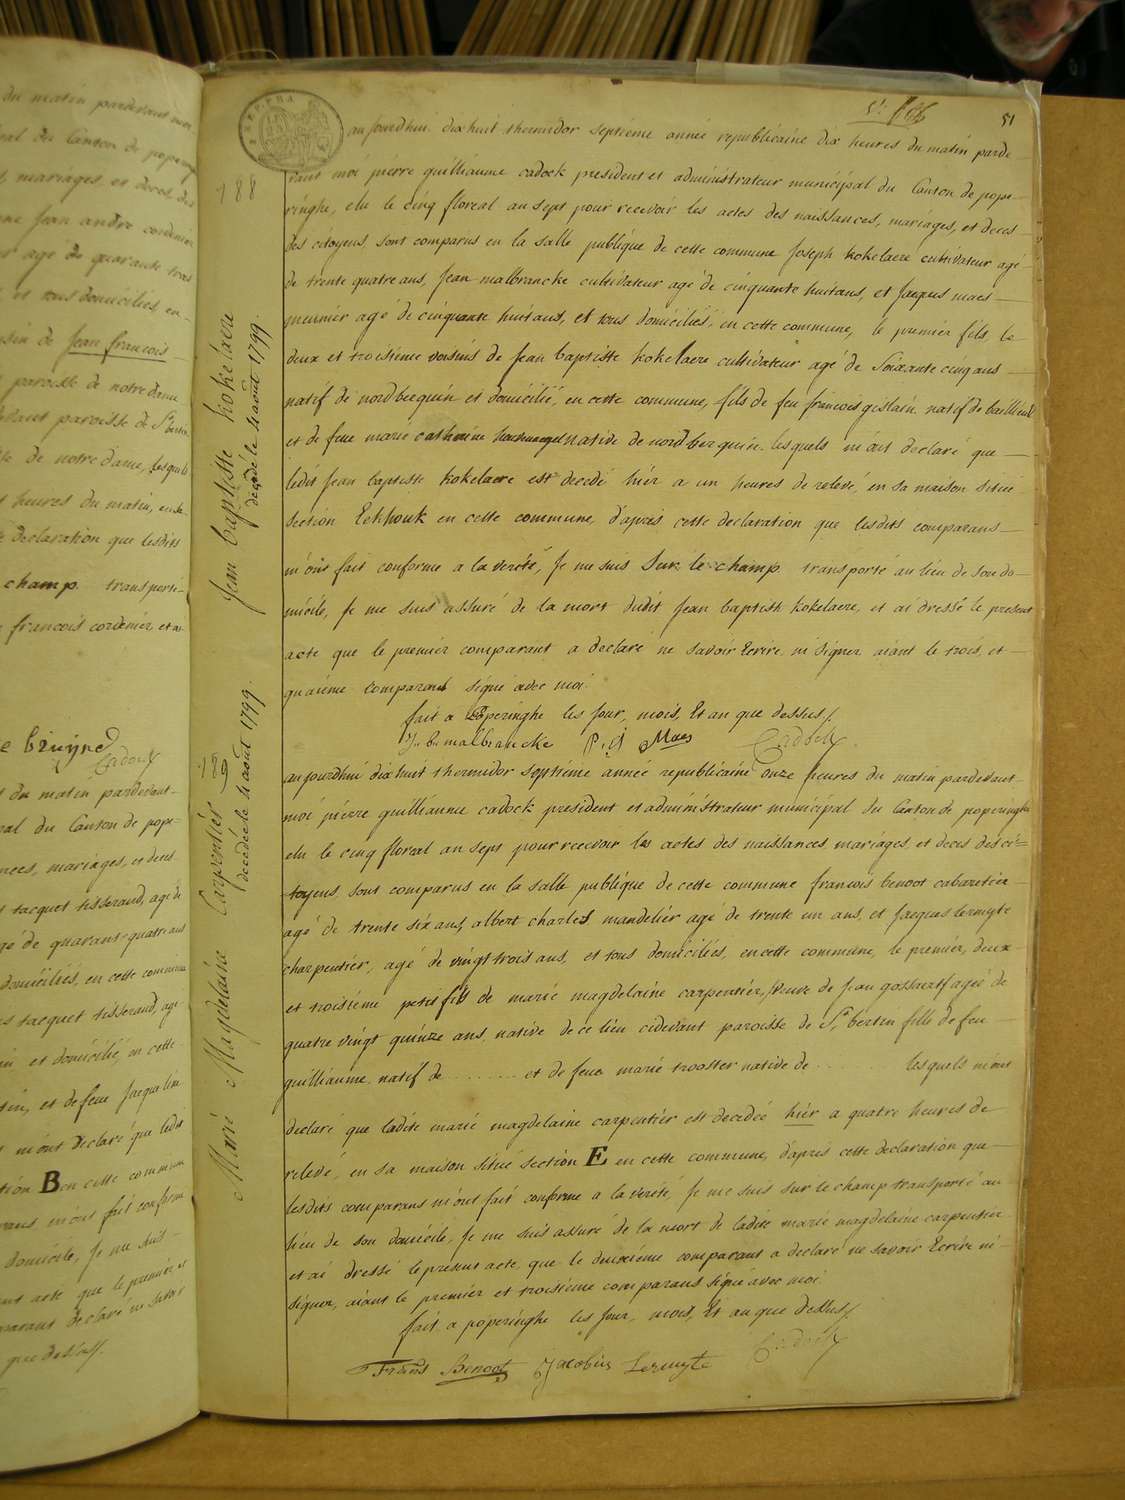 du matin pardevant moi
du Canton de poperi
mariages, et deces des
Jean andre cordenier
agé de quarante trois
et tous domiciliés, en
de Jean francois
paroisse de notre dame
paroisse de St bertin
de notre dame, lesquels
heures du matin, en sa
declaration que lesdits
champ transporté
francois cordenier, et ai
e bruyne
Cadock
du matin pardevant
du Canton de pope
mariages, et deces
tacquet tisserand, agé de
de quarante quatre ans
domiciliés, en cette commune
tacquet tisserand, agé
et domicilié, en cette
et de feue Jacqueline
m'ont declaré que ledit
section B en cette commune
m'ont fait conforme
domicile, Je me suis
acte que le premier et
declaré ne savoir
que dessus/.
51
188
Jean baptiste kokelaere
decedé le 4 août 1799.
aujourdhui dix huit thermidor septiéme année republicaine dix heures du matin parde
vant moi piérre guilliaume cadock president et administrateur municipal du Canton de pope
ringhe, elu le cinq floreal an sept pour recevoir les actes des naissances, mariages, et deces
des citoyens, sont comparus en la salle publique de cette commune Joseph kokelaere cultivateur agé
de trente quatre ans, Jean malbrancke cultivateur agé de cinquante huit ans, et Jacques maes
meunier agé de cinquante huit ans, et tous domiciliés, en cette commune, le premier fils, le
deux et troisiéme voisins de Jean baptiste kokelaere cultivateur agé de Soixante cinq ans
natif de nordberquin et domicilié, en cette commune, fils de feu francois gislain natif de bailleul
et de feue marie cathrine natide de nordberquin. lesquels m'ont declaré que
ledit Jean baptiste kokelaere est decedé hiér a un heures de relevé, en sa maison situé
section Eekhouk en cette commune, d'aprés cette declaration que lesdits comparans
m'ont fait conforme a la verité, Je me suis Sur le champ transporté au lieu de son do
micile, Je me suis assuré de la mort dudit Jean baptiste kokelaere, et ai dressé le present
acte que le premier comparant a declaré ne savoir Ecrire ni signer aiant le trois, et
quaiéme comparans signé avec moi.
fait a Poperinghe les Jour, mois, Et an que dessus/.
malbrancke P: J Maes Cadock
189
Marié Magdelaine Carpentiér
decédée le 4 août 1799.
aujourdhui dix huit thermidor septiéme année republicaine onze heures du matin pardevant
moi piérre guilliaume cadock president et administrateur municipal du Canton de poperinghe
elu le cinq floreal an sept pour recevoir les actes des naissances mariages et deces des ci=
toyens, sont comparus en la salle publique de cette commune francois benoot cabaretiér
agé de trente six ans, albert charles mandeliér agé de trente un ans, et Jacques lermyte
charpentiér, agé de vingt trois ans, et tous domiciliés, en cette commune, le premier, deux
et troisiéme petit fils de marie magdelaine carpentiér, veuve de Jean gossaert agée de
quatre vingt quinze ans, native de ce lieu cidevant paroisse de St bertin fille de feu
guilliaume natif de ......... et de feue marié trooster native de ......... lesquels m'ont
declaré que ladite marié magdelaine carpentiér est decedée hiér a quatre heures de
relevé, en sa maison situé section E en cette commune, d'aprés cette declaration que
lesdits comparans m'ont fait conforme a la verité, Je me suis sur le champ transporté au
lieu de son domicile, Je me suis assuré de la mort de ladite marié magdelaine carpentier
et ai dressé le present acte, que le deuxiéme comparant a declaré ne savoir Ecrire ni
signer, aiant le premiér et troisiéme comparans signé avec moi.
fait a poperinghe les Jour, mois, Et an que dessus/.
Frans Benoot Jacobus Lermyte Cadock